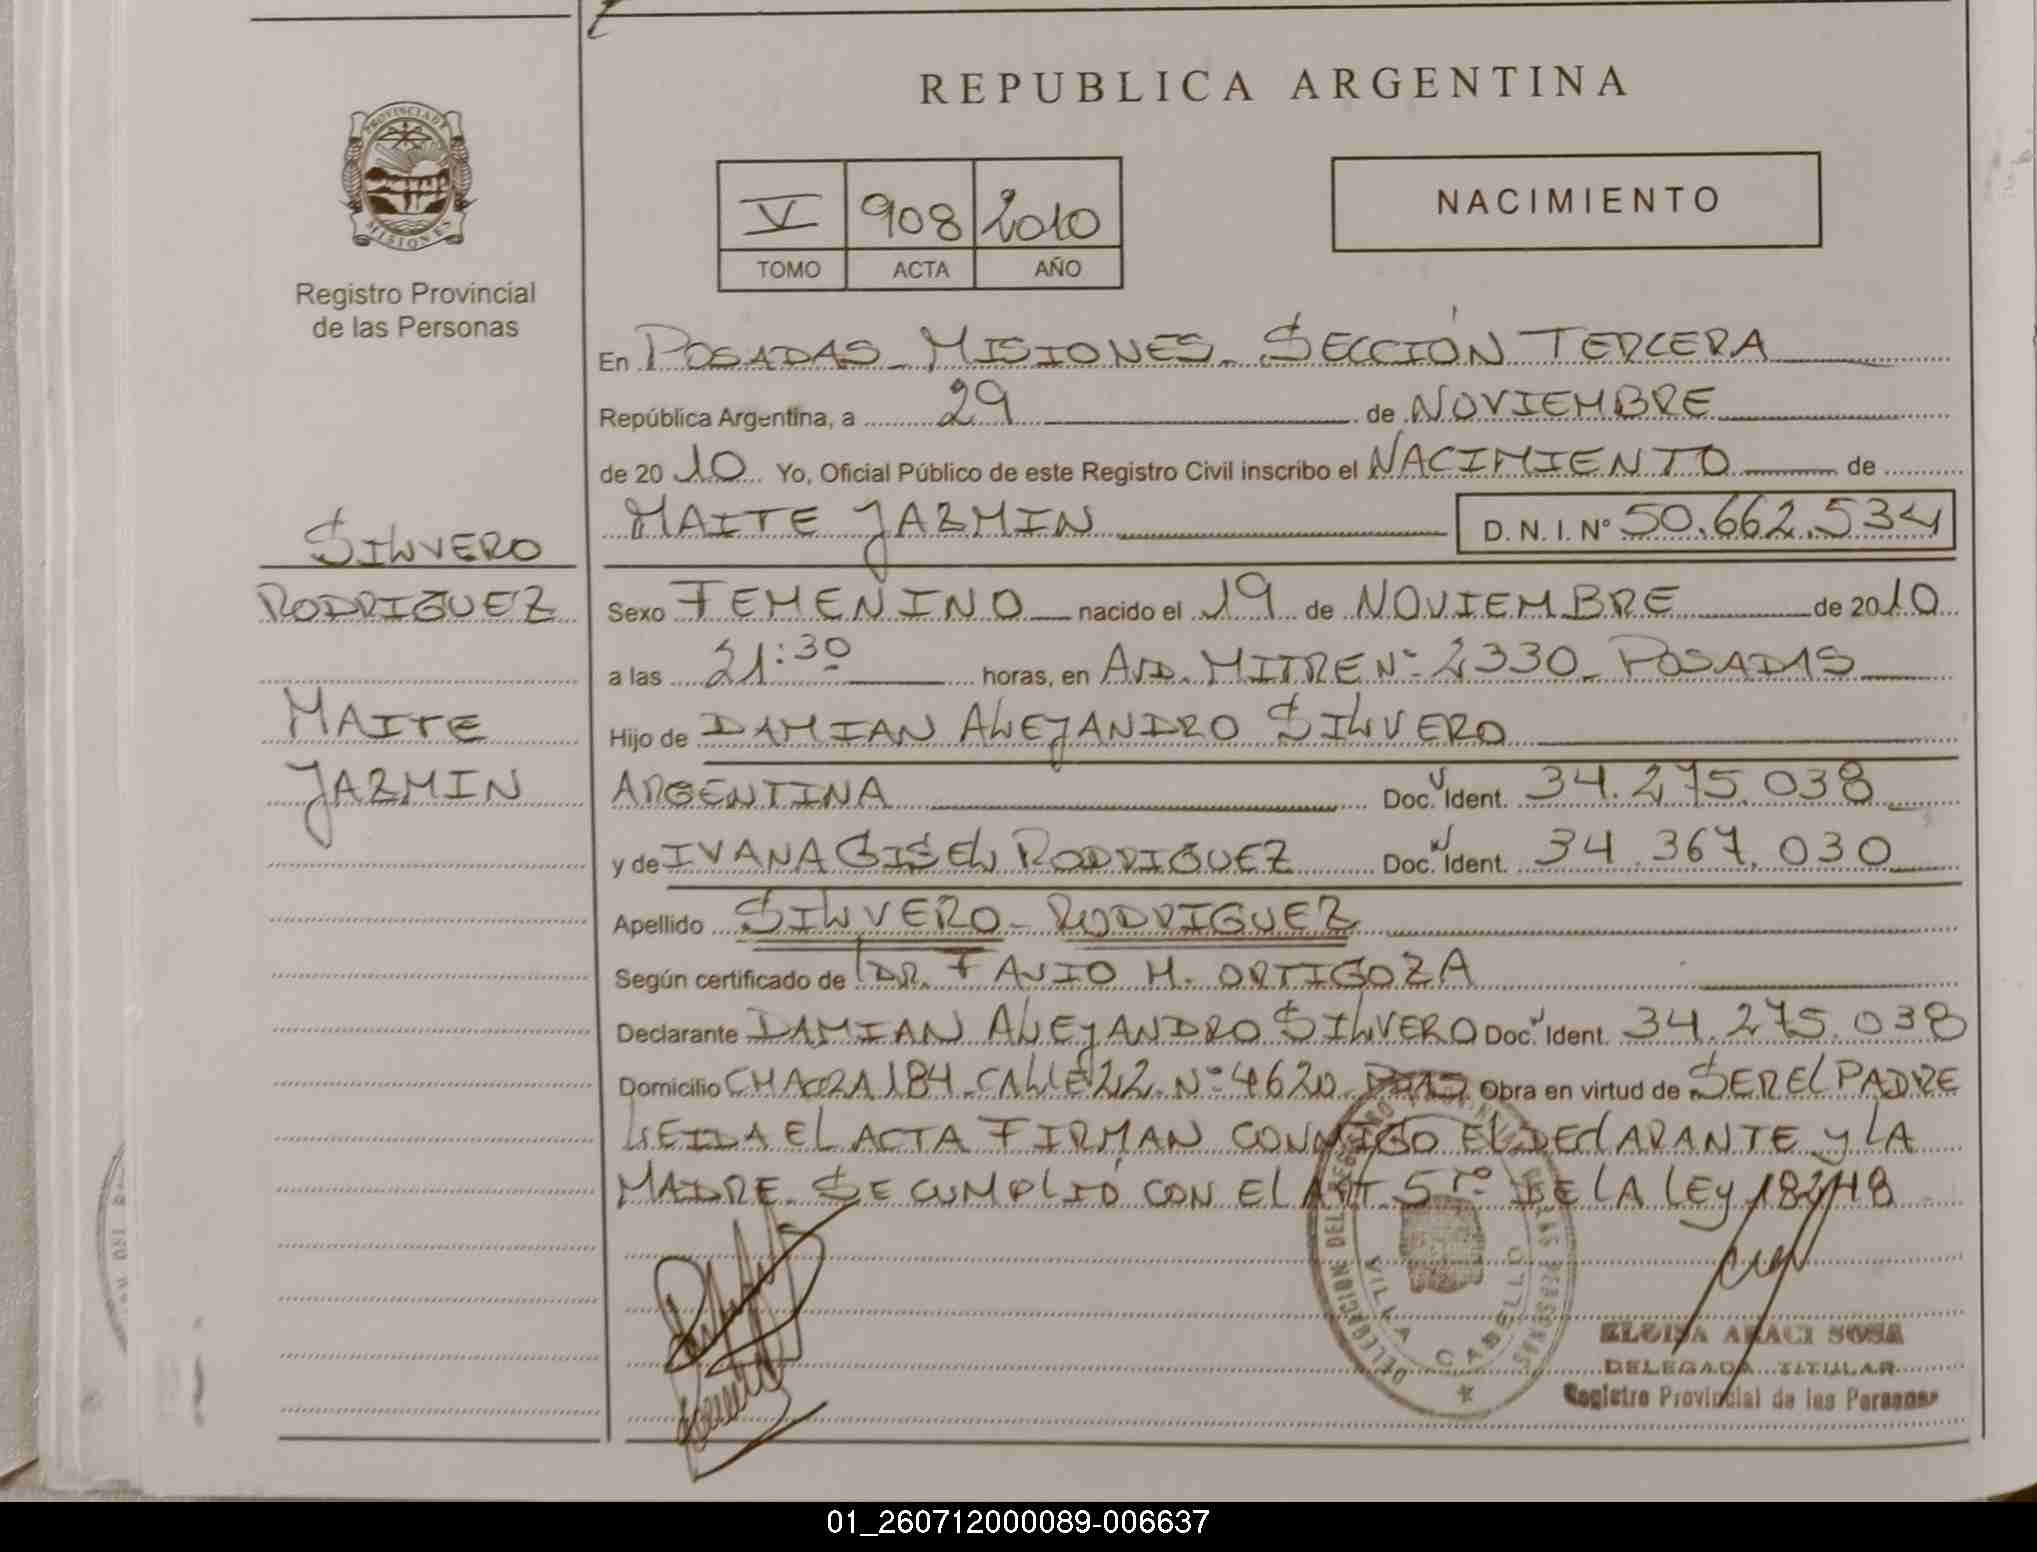 REPUBLICA ARGENTINA
PROVINCIA DE
MISIONES
Registro Provincial
de las Personas
V 908 2010
TOMO ACTA AÑO
NACIMIENTO
En POSADAS - MISIONES - SECCIÓN TERCERA
República Argentina, a 29 de NOVIEMBRE
de 2010 Yo, Oficial Público de este Registro Civil inscribo el NACIMIENTO de
MAITE JAZMIN D. N. I. N° 50.662.534
SILVERO
RODRIGUEZ
MAITE
JAZMIN
Sexo FEMENINO nacido el 19 de NOVIEMBRE de 2010
a las 21:30 horas, en AVD. MITRE N° 2330 - POSADAS
Hijo de DAMIAN ALEJANDRO SILVERO
ARGENTINA Doc. Ident. 34.275.038
y de IVANA GISEL RODRIGUEZ Doc. Ident. 34.367.030
Apellido SILVERO - RODRIGUEZ
Según certificado de DR. FAVIO H. ORTIGOZA
Declarante DAMIAN ALEJANDRO SILVERO Doc. Ident. 34.275.038
Domicilio CHACRA 184 - CALLE 22 - N° 4620 - Obra en virtud de SER EL PADRE
LEIDA EL ACTA FIRMAN CONMIGO EL DECLARANTE Y LA
MADRE. SE CUMPLIÓ CON EL ART. 5to DE LA LEY 18248
DELEGACION DEL REGISTRO PROVINCIAL DE LAS PERSONAS
VILLA CABELLO
ELOISA ARACI SOSA
DELEGADA TITULAR
Registro Provincial de las Personas
01_260712000089-006637